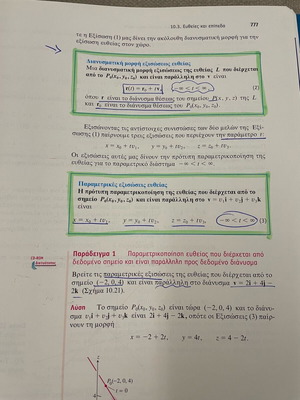 10.3. Ευθείες και επίπεδα 777
τε η Εξίσωση (1) μας δίνει την ακόλουθη διανυσματική μορφή για την
εξίσωση ευθείας στον χώρο.
Διανυσματική μορφή εξισώσεως ευθείας
Μια διανυσματική μορφή εξισώσεως της ευθείας L που διέρχεται
από το P₀(x₀, y₀, z₀) και είναι παράλληλη στο v είναι
r(t) = r₀ + tv, −∞ < t < ∞ (2)
όπου r είναι το διάνυσμα θέσεως του σημείου P(x, y, z) της L
και r₀ είναι το διάνυσμα θέσεως του P₀(x₀, y₀, z₀).
Εξισώνοντας τις αντίστοιχες συνιστώσες των δύο μελών της Εξί-
σωσης (1) παίρνουμε τρεις εξισώσεις που περιέχουν την παράμετρο t:
x = x₀ + tv₁, y = y₀ + tv₂, z = z₀ + tv₃.
Οι εξισώσεις αυτές μας δίνουν την πρότυπη παραμετροποίηση της
ευθείας για το παραμετρικό διάστημα −∞ < t < ∞.
Παραμετρικές εξισώσεις ευθείας
Η πρότυπη παραμετροποίηση της ευθείας που διέρχεται από το
σημείο P₀(x₀, y₀, z₀) και είναι παράλληλη στο v = v₁i + v₂j + v₃k
είναι
x = x₀ + tv₁, y = y₀ + tv₂, z = z₀ + tv₃, −∞ < t < ∞ (3)
CD-ROM
Παράδειγμα 1 Παραμετροποίηση ευθείας που διέρχεται από
δεδομένο σημείο και είναι παράλληλη προς δεδομένο διάνυσμα
Βρείτε τις παραμετρικές εξισώσεις της ευθείας που διέρχεται από το
σημείο (−2, 0, 4) και είναι παράλληλη στο διάνυσμα v = 2i + 4j −
2k (Σχήμα 10.21).
Λύση Το σημείο P₀(x₀, y₀, z₀) είναι τώρα (−2, 0, 4) και το διάνυ-
σμα v₁i + v₂j + v₃k είναι 2i + 4j − 2k, οπότε οι Εξισώσεις (3) παίρ-
νουν τη μορφή
x = −2 + 2t, y = 4t, z = 4 − 2t.
z
P₀(−2, 0, 4)
t = 0